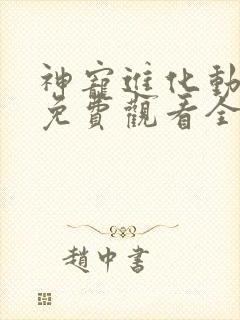 神寵進化動
免費觀看全
趙中書